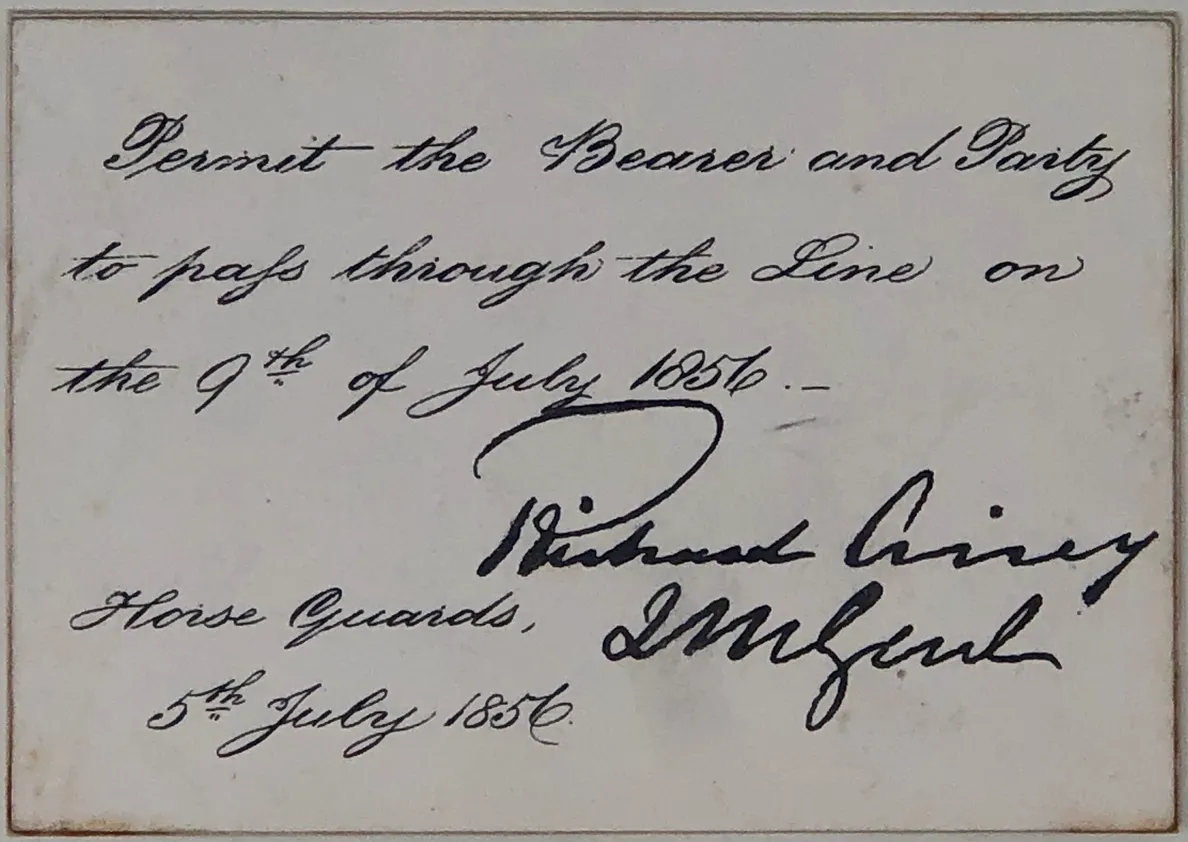 Permit the Bearer and Party
to paſs through the Line on
the 9th of July 1856. –
Richard Airey
QMGenl
Horse Guards,
5th July 1856.